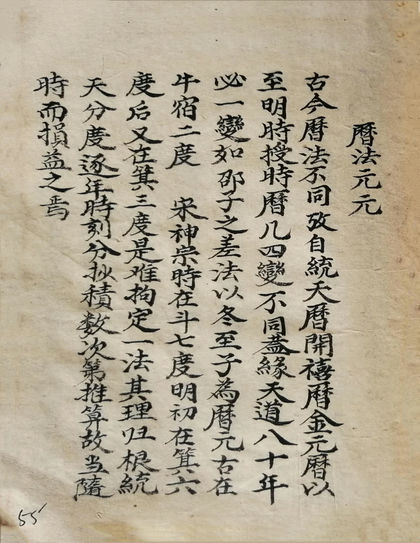 曆法元元
古今曆法不同攷自統天曆開禧曆金元曆以
至明時授時曆几四變不同蓋緣天道八十年
必一變如邵子之差法以冬至子為曆元古在
牛宿二度 宋神宗時在斗七度明初在箕六
度后又在箕三度是难拘定一法其理归根統
天分度逐年時刻分抄積数次第推算故当隨
時而損益之焉
55